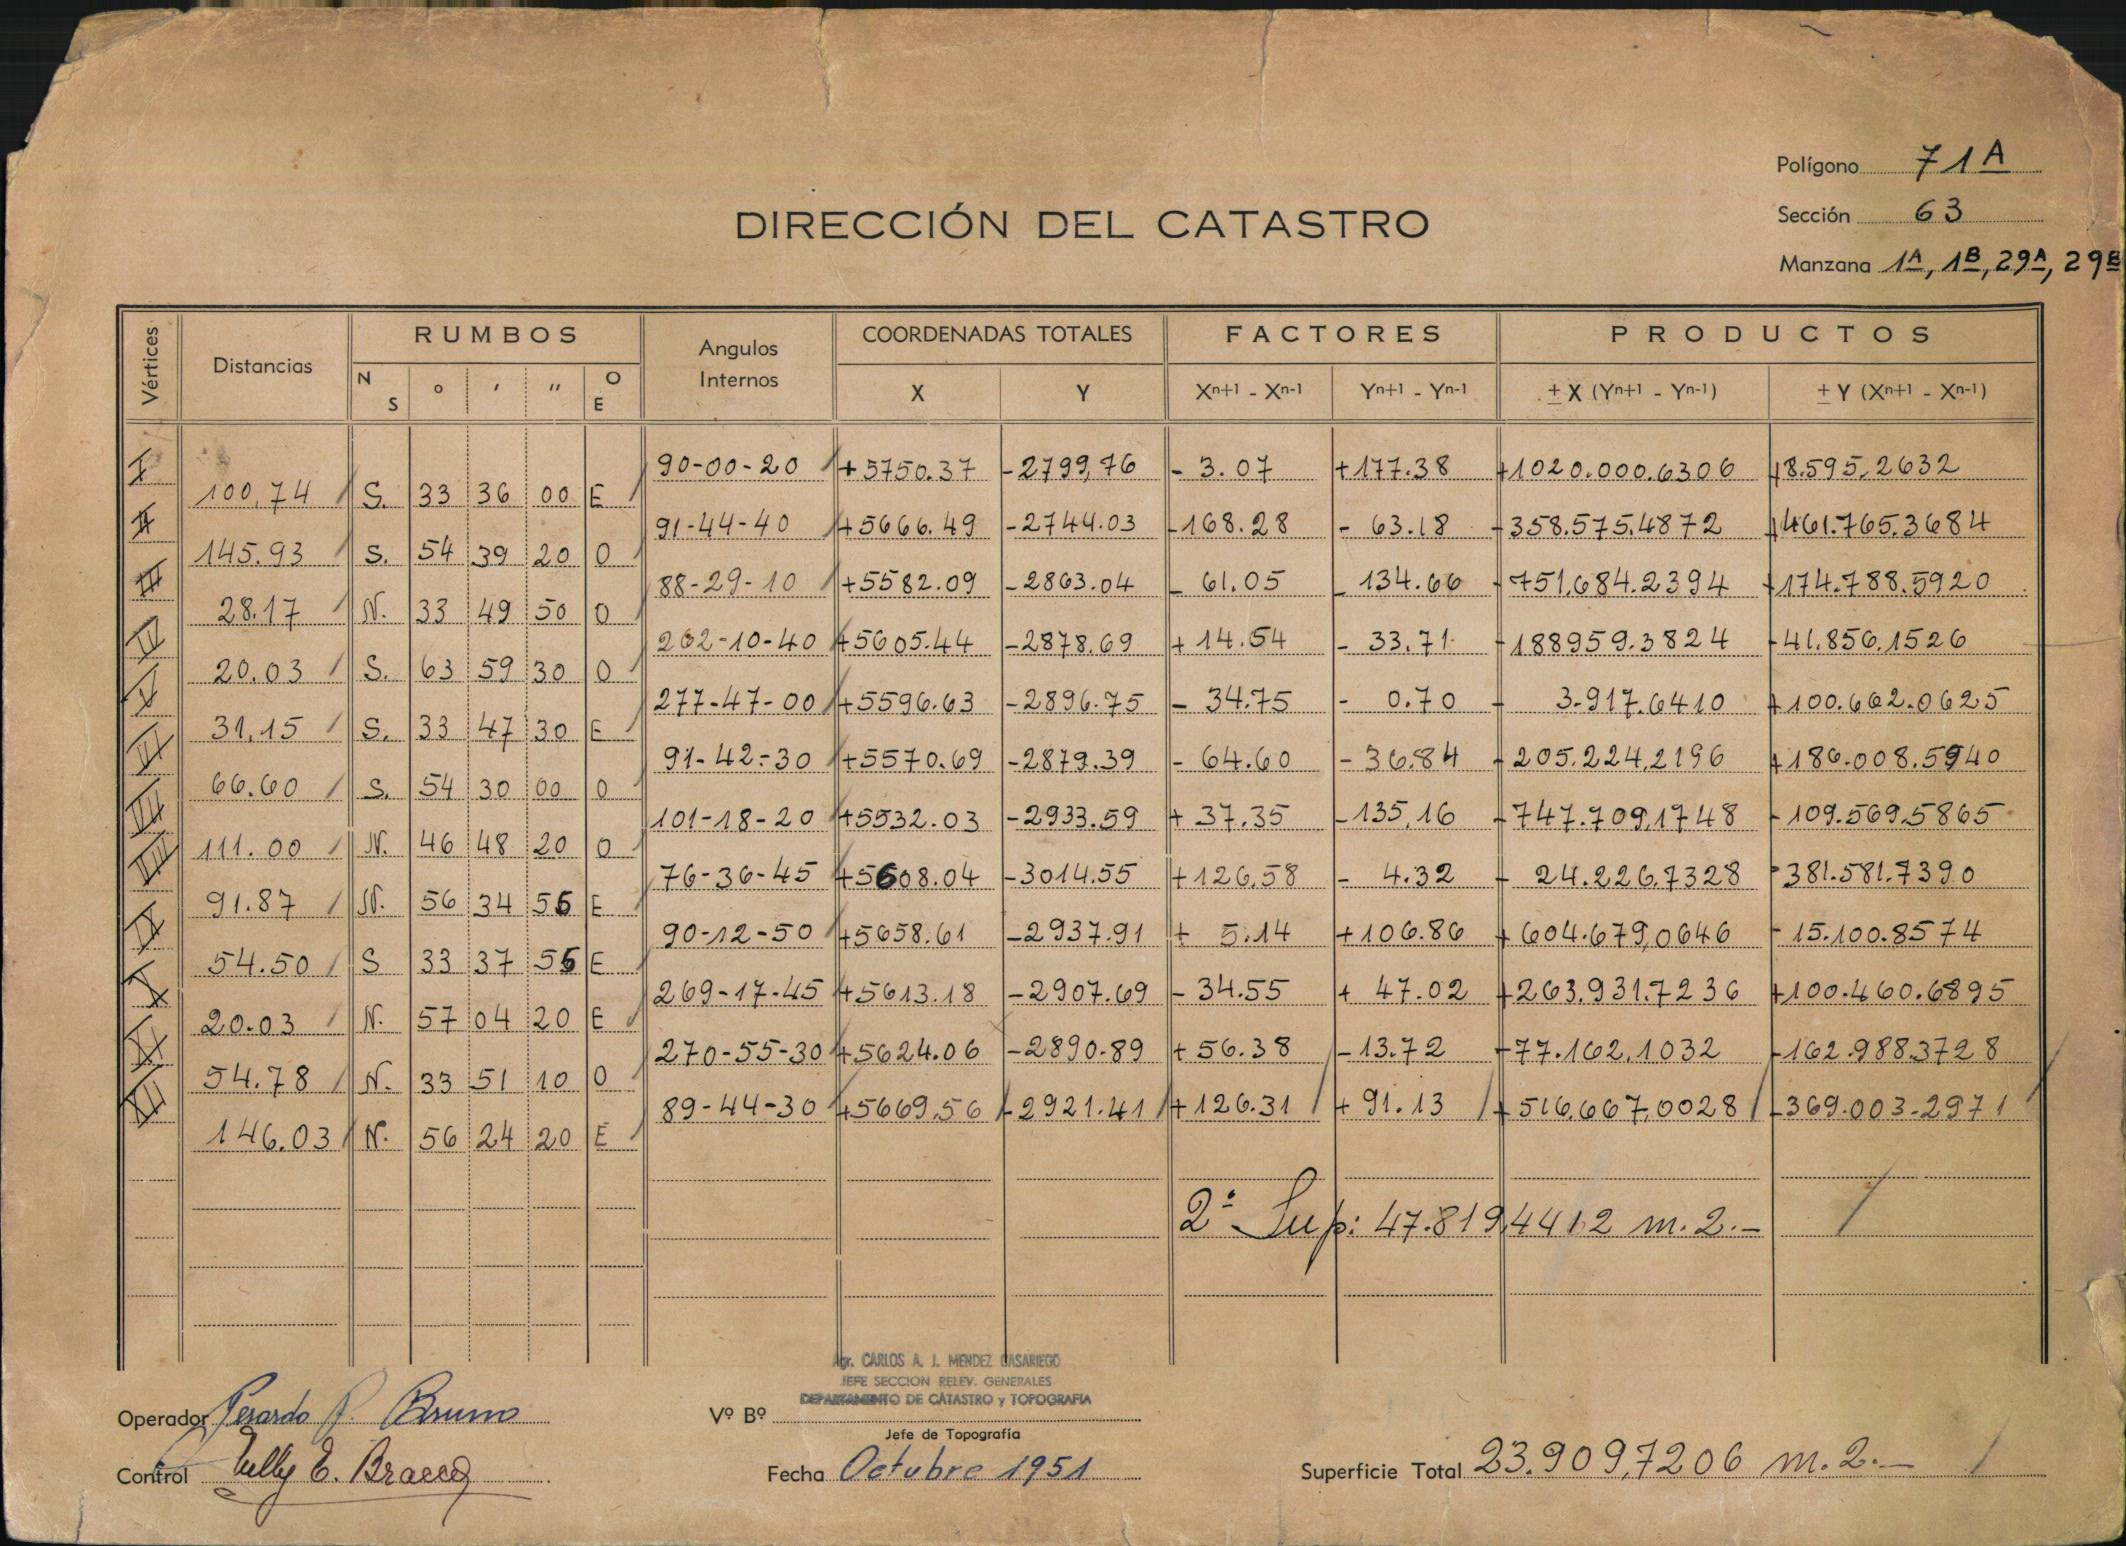 Polígono 71A
Sección 63
DIRECCIÓN DEL CATASTRO
Manzana 1A, 1B, 29A, 29B
Vértices Distancias RUMBOS Angulos Internos COORDENADAS TOTALES FACTORES PRODUCTOS
N S ° ' " O E X Y Xn+1 - Xn-1 Yn+1 - Yn-1 ± X (Yn+1 - Yn-1) ± Y (Xn+1 - Xn-1)
I 90-00-20 +5750.37 -2799,76 - 3.07 +177.38 +1020.000.6306 +8.595.2632
100,74 S. 33 36 00 E
II 91-44-40 +5666.49 -2744.03 -168.28 - 63.18 -358.575.4872 +461.765.3684
145.93 S. 54 39 20 O
III 88-29-10 +5582.09 -2863.04 - 61.05 - 134.66 -751.684.2394 +174.788.5920
28.17 N. 33 49 50 O
IV 262-10-40 +5605.44 -2878.69 + 14.54 - 33.71 -188959.3824 -41.856.1526
20.03 S. 63 59 30 O
V 277-47-00 +5596.63 -2896.75 - 34.75 - 0.70 - 3.917.6410 +100.662.0625
31.15 S. 33 47 30 E
VI 91-42-30 +5570.69 -2879.39 - 64.60 - 36.84 -205.224.2196 +186.008.5940
66.60 S. 54 30 00 O
VII 101-18-20 +5532.03 -2933.59 + 37.35 -135,16 -747.709,1748 -109.569.5865
111.00 N. 46 48 20 O
VIII 76-36-45 +5608.04 -3014.55 +126,58 - 4.32 - 24.226.7328 -381.581.7390
91.87 N. 56 34 55 E
IX 90-12-50 +5658.61 -2937.91 + 5.14 +106.86 +604.679,0646 -15.100.8574
54.50 S 33 37 55 E
X 269-17-45 +5613.18 -2907.69 - 34.55 + 47.02 +263.931.7236 +100.460.6895
20.03 N. 57 04 20 E
XI 270-55-30 +5624.06 -2890.89 +56.38 -13.72 -77.162.1032 -162.988.3728
54.78 N. 33 51 10 O
XII 89-44-30 +5669.56 -2921.41 +126.31 +91.13 +516.667,0028 -369.003.2971
146.03 N. 56 24 20 E
2ª Sup: 47.819,4412 m.2.-
Agr. CARLOS A. J. MENDEZ CASARIEGO
JEFE SECCION RELEV. GENERALES
DEPARTAMENTO DE CATASTRO y TOPOGRAFIA
Operador Gerardo P. Bruno Vº Bº
Jefe de Topografía
Control Nelly E. Fecha Octubre 1951 Superficie Total 23.909,7206 m.2.-